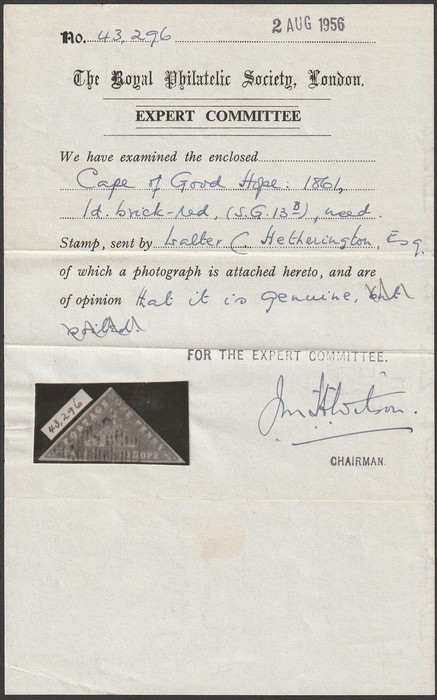 2 AUG 1956
No. 43,296
The Royal Philatelic Society, London.
EXPERT COMMITTEE
We have examined the enclosed
Cape of Good Hope: 1861,
1d. brick-red, (S.G. 13B), used.
Stamp, sent by Walter C. Hetherington, Esq.
of which a photograph is attached hereto, and are
of opinion that it is genuine, but
FOR THE EXPERT COMMITTEE.
43,296
HOPE
CHAIRMAN.